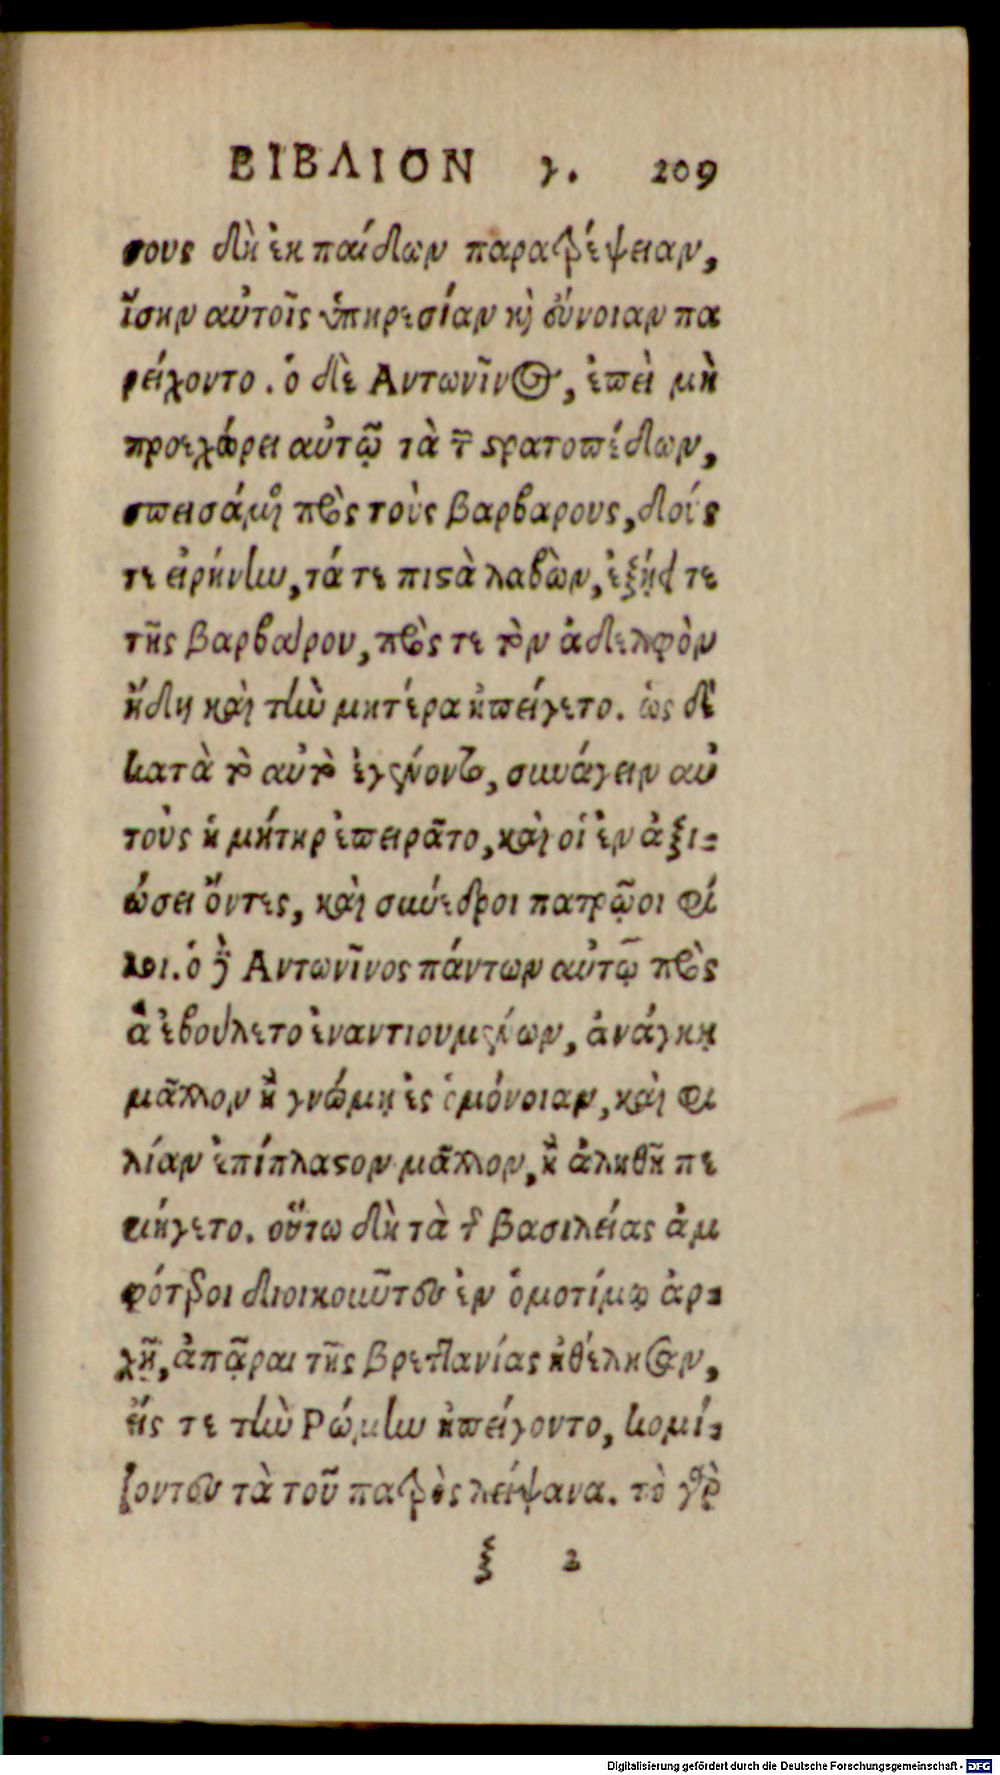 ΒΙΒΛΙΟΝ γ. 209
σους δὴ ἐκ παίδων παραθρέψειαν,
ἴσην αὐτοῖς ὑπηρεσίαν καὶ εὔνοιαν πα
ρείχοντο. ὁ δὲ Αντωνῖνος, ἐπεὶ μὴ
προεχώρει αὐτῷ τὰ τῶν στρατοπέδων,
σπεισάμενος πρὸς τοὺς βαρβαρους, δούς
τε εἰρήνην, τά τε πιστὰ λαβὼν, ἐξῄει τε
τῆς βαρβάρου, πρὸς τε τὸν ἀδελφὸν
ἤδη καὶ τὴν μητέρα ἠπείγετο. ὡς δὲ
κατὰ τὸ αὐτὸ ἐγένοντο, συνάγειν αὐ
τοὺς ἡ μήτηρ ἐπειρᾶτο, καὶ οἱ ἐν ἀξι-
ώσει ὄντες, καὶ συνεδροι πατρῷοι φί
λοι. ὁ δὲ Αντωνῖνος πάντων αὐτῷ πρὸς
ἃ ἐβούλετο ἐναντιουμένων, ἀνάγκῃ
μᾶλλον ἢ γνώμῃ ἐς ὁμόνοιαν, καὶ φι
λίαν ἐπίπλαστον μᾶλλον, ἢ ἀληθῆ πε
ριήγετο. οὕτω δὴ τὰ τῆς βασιλείας ἀμ
φότεροι διοικοῦντες ἐν ὁμοτίμῳ ἀρ-
χῇ, ἀπᾶραι τῆς βρεττανίας ἠθέλησαν,
εἴς τε τὴν Ρώμην ἠπείγοντο, κομί-
ζοντες τὰ τοῦ πατρὸς λείψανα. τὸ γὰρ
ξ 2
Digitalisierung gefördert durch die Deutsche Forschungsgemeinschaft - DFG